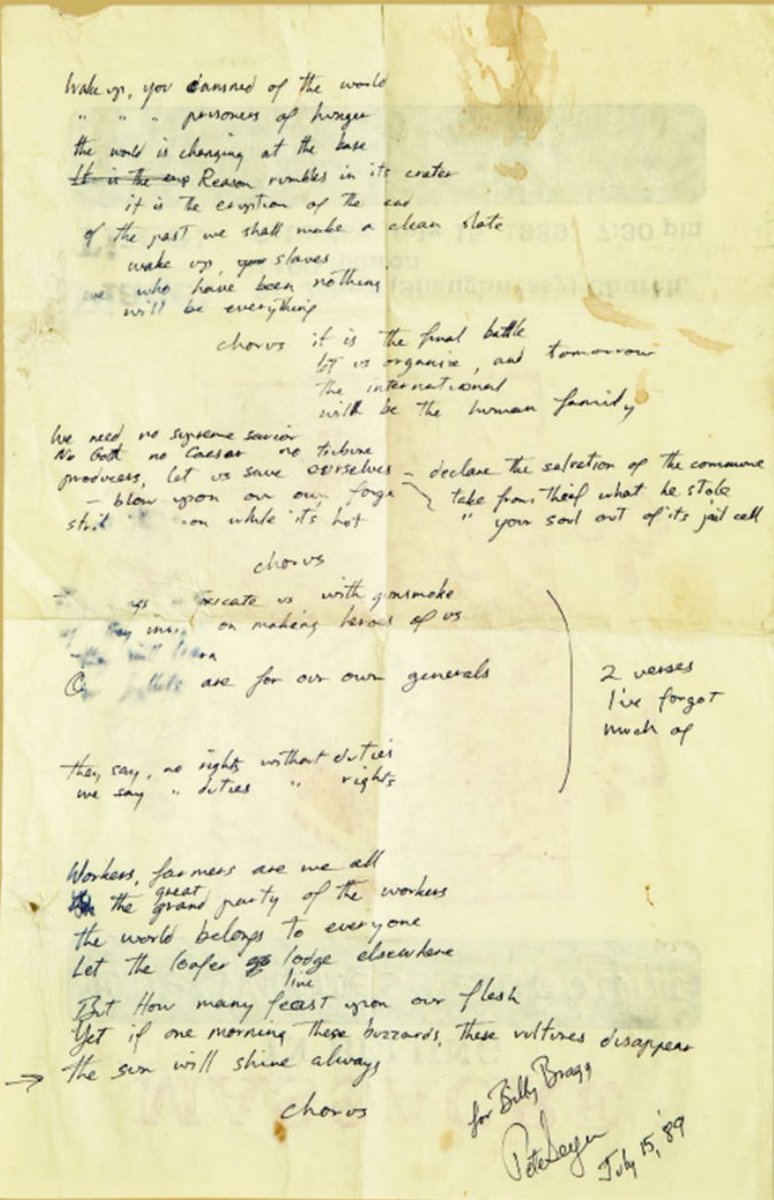 Wake up, you damned of the world
" " " prisoners of hunger
the world is changing at the base
It is the erup Reason rumbles in its crater
it is the eruption of the end
of the past we shall make a clean slate
wake up, you slaves
we who have been nothing
will be everything
chorus it is the final battle
let us organize, and tomorrow
the international
will be the human family
We need no supreme savior
No God no Caesar no tribune
producers, let us save ourselves – declare the salvation of the commune
– blow upon our own forge take from thief what he stole
while it's hot " your soul out of its jail cell
chorus
us with gunsmoke
on making heroes of us
will learn
are for our own generals
2 verses
I've forgot
much of
they say, no rights without duties
we say " duties " rights
Workers, farmers are we all
the great grand party of the workers
the world belongs to everyone
Let the loafer go lodge elsewhere
live
But How many feast upon our flesh
Yet if one morning these buzzards, these vultures disappear
→ the sun will shine always
chorus
for Billy Bragg
Pete Seeger
July 15, '89